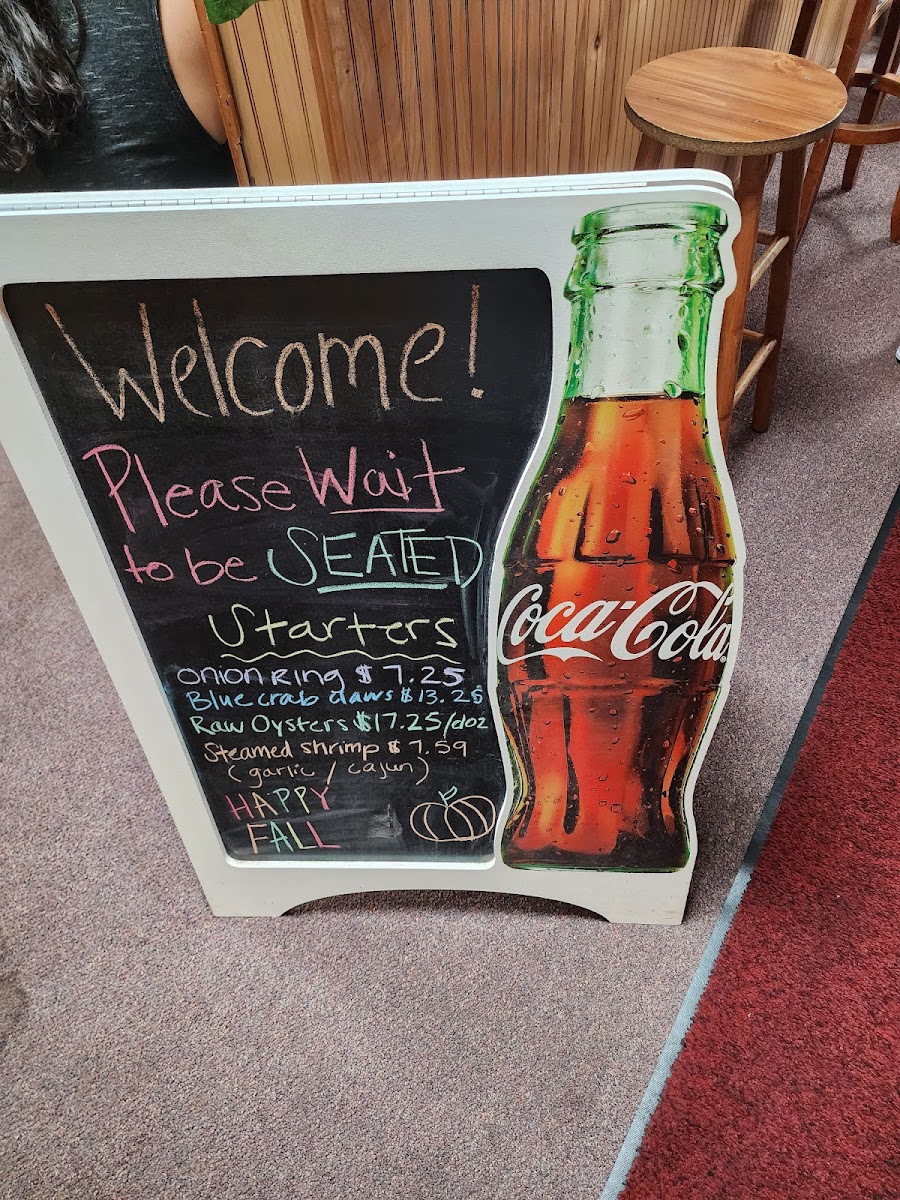 Welcome!
Please Wait
to be SEATED
Starters
onion Ring $ 7.25
Blue crab claws $13.25
Raw Oysters $17.25/doz
Steamed shrimp $ 7.59
(garlic / cajun)
HAPPY
FALL
Coca-Cola